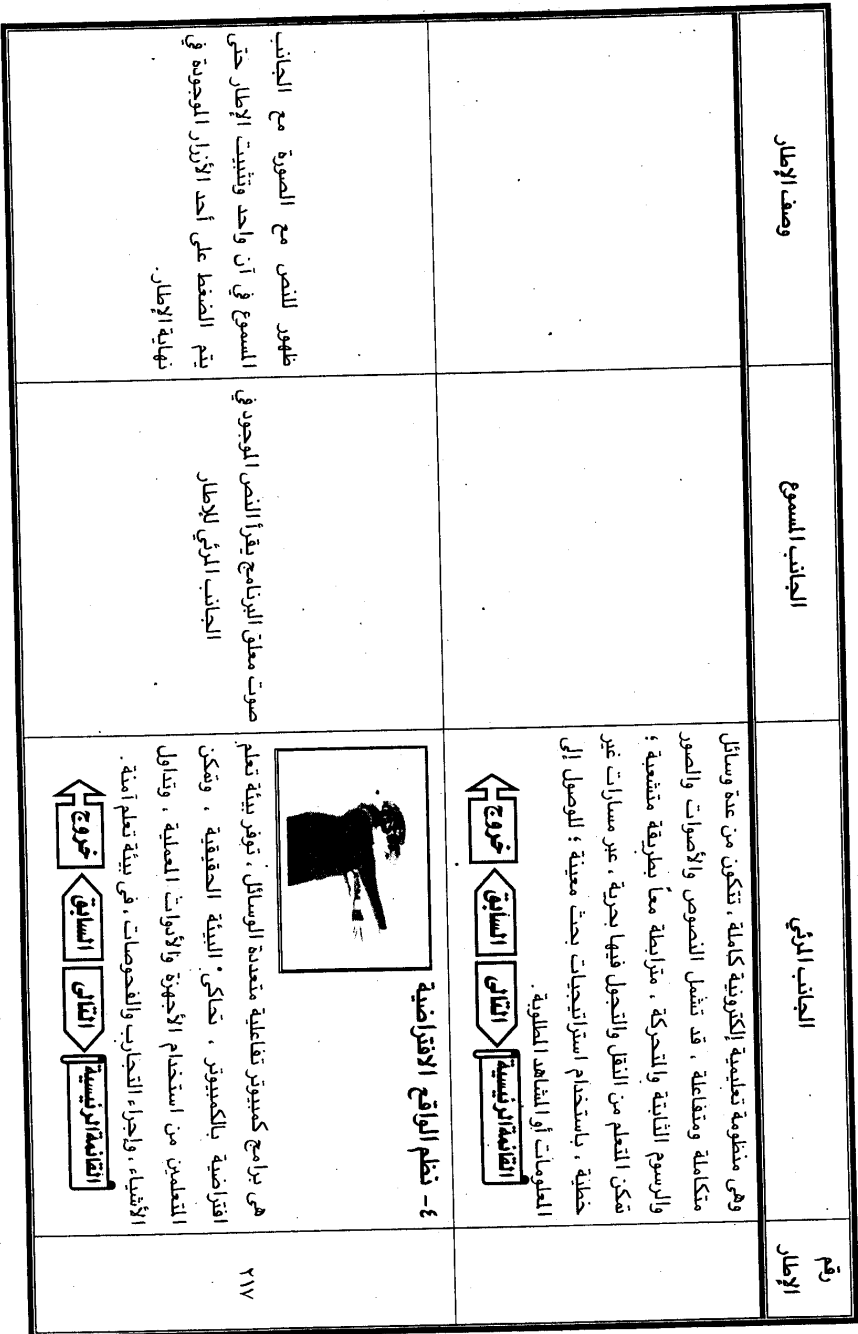 رقم
الإطار
الجانب المرئي
الجانب المسموع
وصف الإطار
وهى منظومة تعليمية إلكترونية كاملة ، تتكون من عدة وسائل
متكاملة ومتفاعلة ، قد تشمل النصوص والأصوات والصور
والرسوم الثابتة والمتحركة ، مترابطة معاً بطريقة متشعبة ؛
تمكن المتعلم من النقل والتجول فيها بحرية ، عبر مسارات غير
خطية ، باستخدام استراتيجيات بحث معينة ؛ للوصول إلى
المعلومات أو المشاهد المطلوبة .
القائمة الرئيسية
التالى
السابق
خروج
٢١٧
٤- نظم الواقع الافتراضية
هى برامج كمبيوتر تفاعلية متعددة الوسائل ، توفر بيئة تعلم
افتراضية بالكمبيوتر ، تحاكى البيئة الحقيقية ، وتمكن
المتعلمين من استخدام الأجهزة والأدوات المعملية ، وتداول
الأشياء ، وإجراء التجارب والفحوصات ، فى بيئة تعلم آمنة .
القائمة الرئيسية
التالى
السابق
خروج
صوت معلق البرنامج يقرأ النص الموجود في
الجانب المرئي للإطار
ظهور للنص مع الصورة مع الجانب
المسموع في آن واحد وتثبيت الإطار حتى
يتم الضغط على أحد الأزرار الموجودة في
نهاية الإطار.